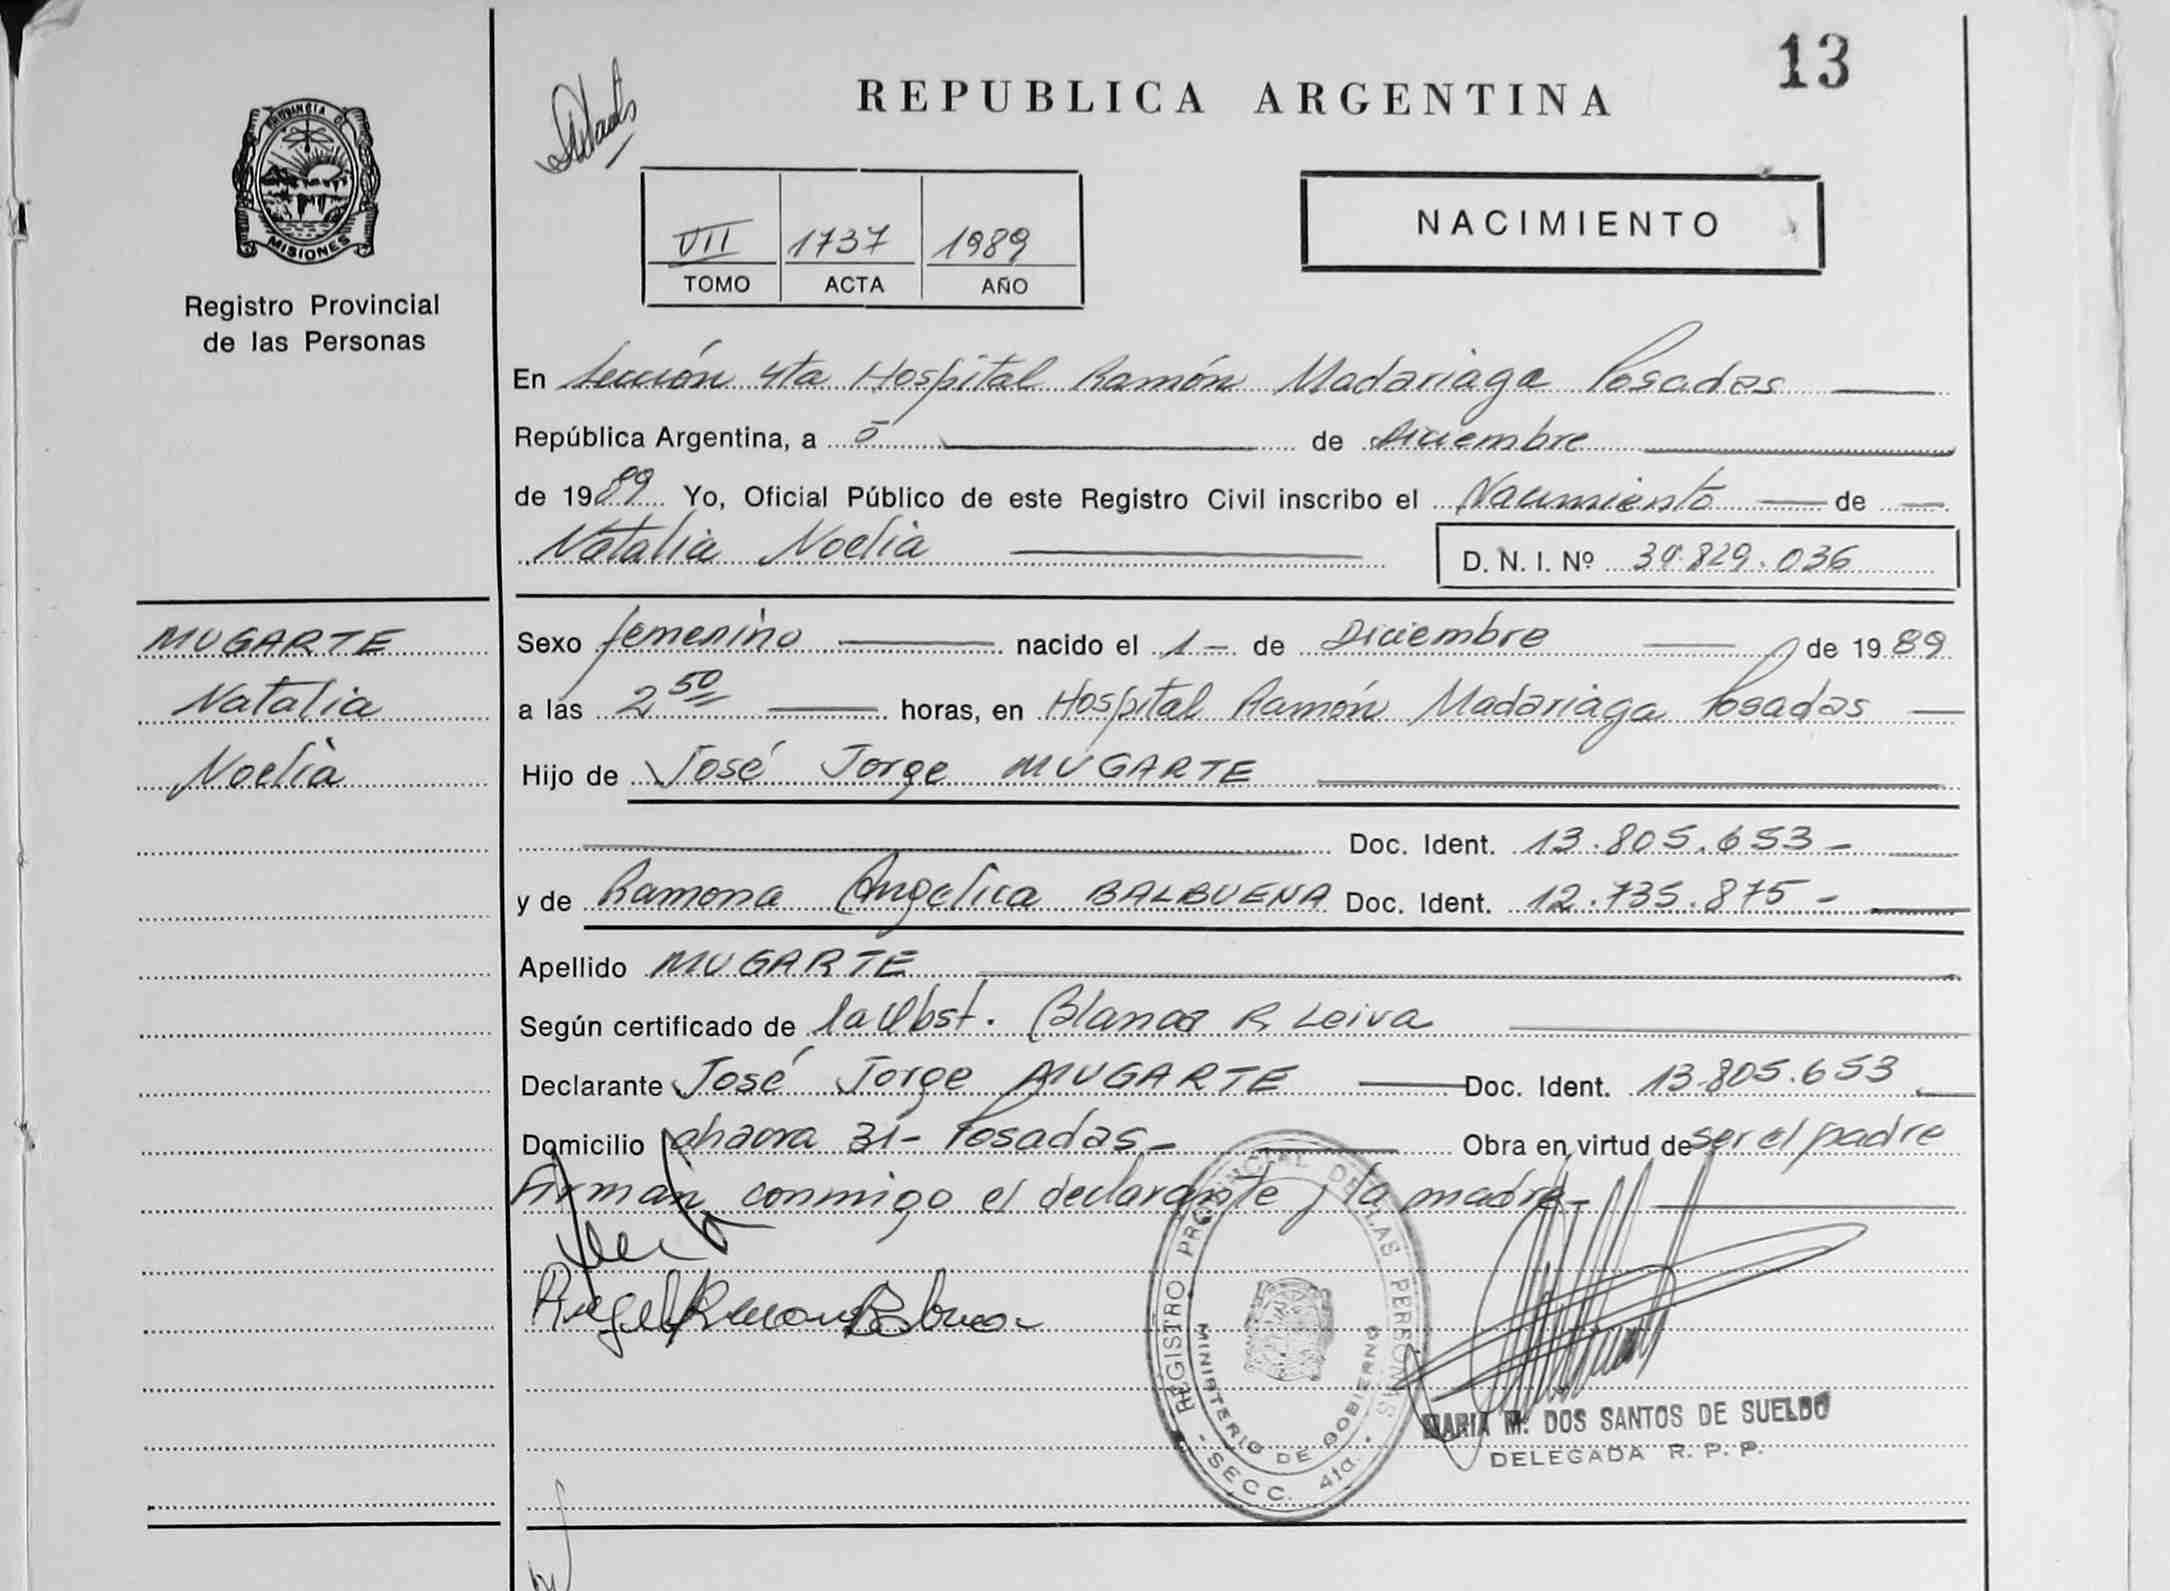 13
REPUBLICA ARGENTINA
PROVINCIA DE
MISIONES
Registro Provincial
de las Personas
VII 1737 1989
TOMO ACTA AÑO
NACIMIENTO
En Sección 4ta Hospital Ramón Madariaga Posadas
República Argentina, a 5 de Diciembre
de 1989 Yo, Oficial Público de este Registro Civil inscribo el Nacimiento de
Natalia Noelia D. N. I. Nº 829.036
MUGARTE
Natalia
Noelia
Sexo femenino nacido el 1- de Diciembre de 1989
a las 2,50 horas, en Hospital Ramón Madariaga Posadas
Hijo de José Jorge MUGARTE
Doc. Ident. 13.805.653-
y de Ramona Angelica BALBUENA Doc. Ident. 12.735.875-
Apellido MUGARTE
Según certificado de la Obst. Blanca R Leiva
Declarante José Jorge MUGARTE Doc. Ident. 13.805.653
Domicilio 31- Posadas- Obra en virtud de ser el padre
Firman conmigo el declarante y la madre-
REGISTRO PROVINCIAL DE LAS PERSONAS
MINISTERIO DE GOBIERNO
- SECC. 4ta. -
MARIA M. DOS SANTOS DE SUELDO
DELEGADA R. P. P.